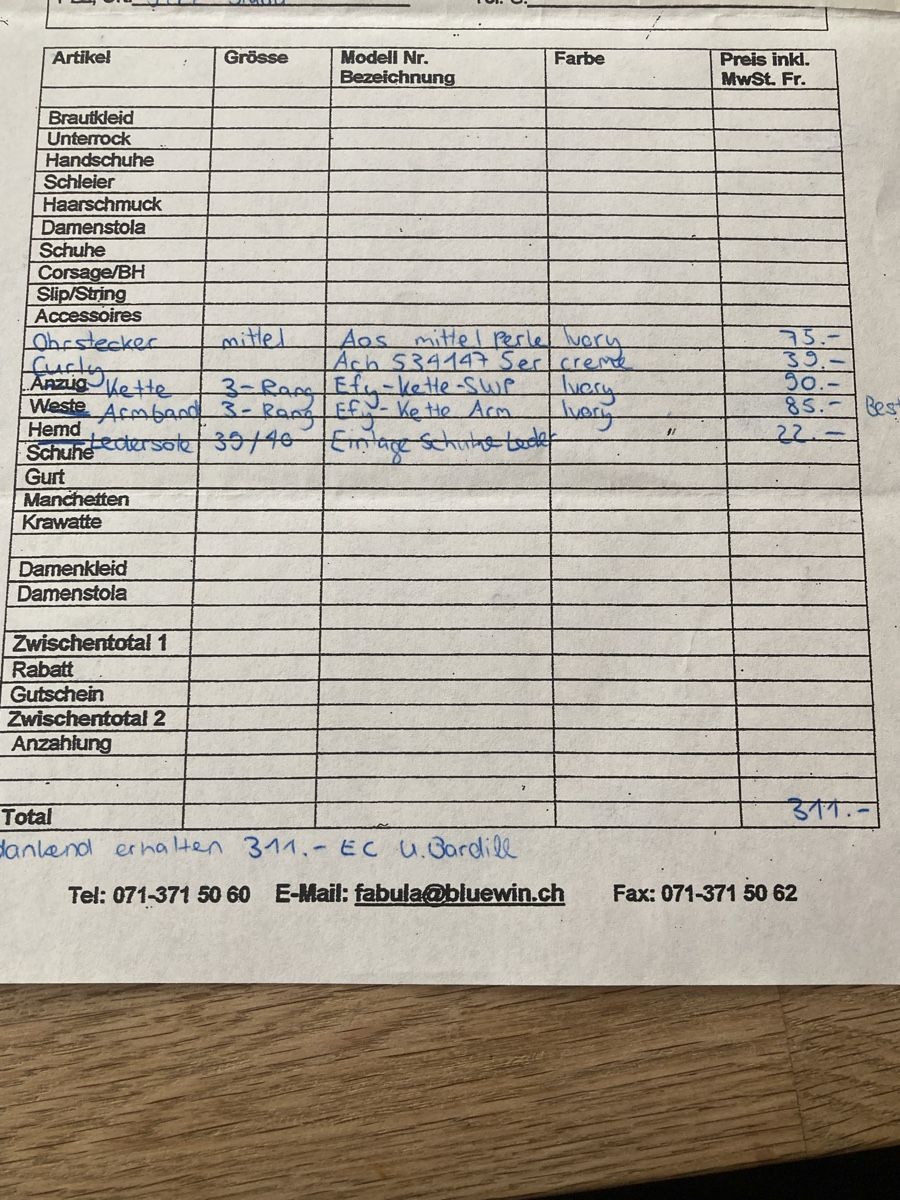 Artikel Grösse Modell Nr. Bezeichnung Farbe Preis inkl. MwSt. Fr.
Brautkleid
Unterrock
Handschuhe
Schleier
Haarschmuck
Damenstola
Schuhe
Corsage/BH
Slip/String
Accessoires
Ohrstecker mittel Aos mittel Perle Ivory 75.-
Curly Ach 534147 Ser creme 39.-
Anzug Kette 3-Rang Efy-Kette-SWP Ivory 90.-
Weste Armband 3-Rang Efy-Kette Arm Ivory 85.- Best
Hemd Ledersole 39/40 Einlage Schuhe Leder " 22.-
Schuhe
Gurt
Manchetten
Krawatte
Damenkleid
Damenstola
Zwischentotal 1
Rabatt
Gutschein
Zwischentotal 2
Anzahlung
Total 311.-
dankend erhalten 311.- EC U. Bardill
Tel: 071-371 50 60 E-Mail: fabula@bluewin.ch Fax: 071-371 50 62